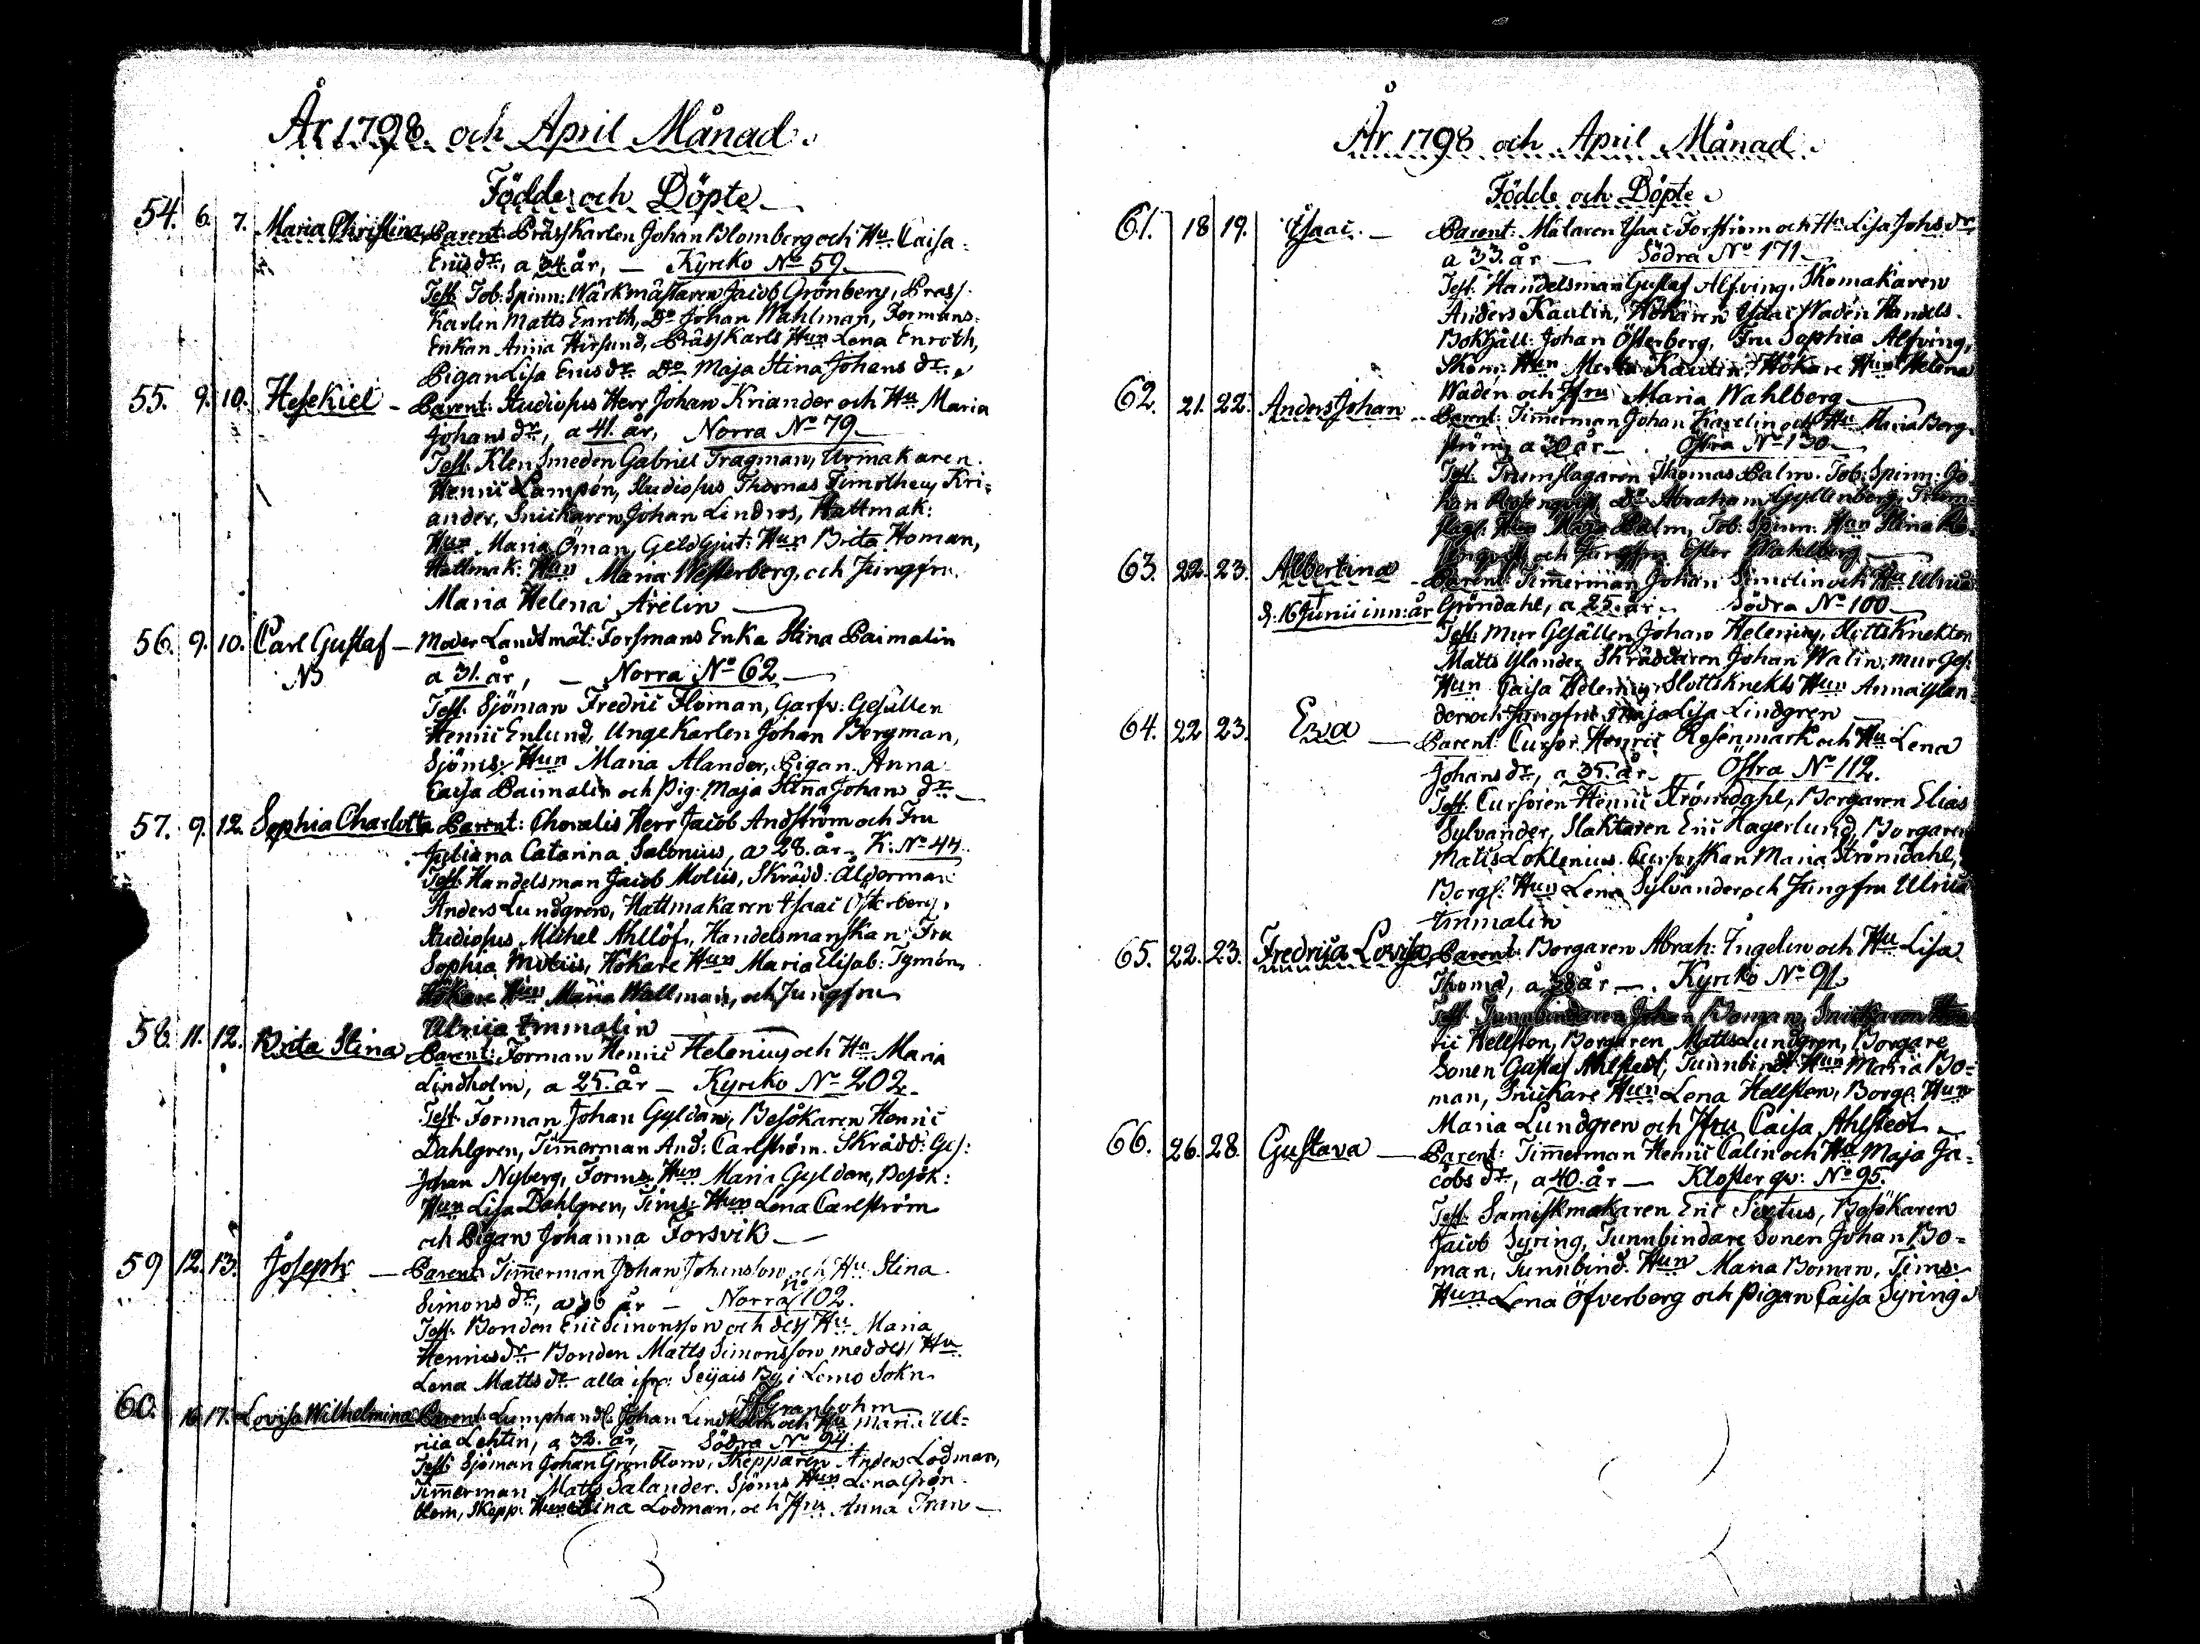 År 1798. och April Månad.
Födde och Döpte
54. 6. 7. Maria Christina, Parent: Prässkarlen Johan Blomberg och Hu. Caisa
Ericsdr, a 34 år, — Kyrko No 59
Test. Tob: Spinn: Wärkmästaren Jacob Grönberg, Präss
Karlen Matts Enroth, Do Johan Wahlman, Formans
Enkan Anna Hirsund, Prässkarls Hun Lena Enroth,
Pigan Lisa Ericsdr Do Maja Stina Johansdr
55. 9. 10. Hesekiel - Parent: Studiosus Herr Johan Kriander och Hu Maria
Johansdr, a 41. år, Norra No 79
Test. Klensmeden Gabriel Tragman, Urmakaren
Henric Lampén, Studiosus Thomas Timotheus Kri-
ander, Snickaren Johan Lindros, Hattmak:
Hun Maria Öman, Geldgjut: Hun Brita Homan,
Hattmak: Hun Maria Westerberg, och Jungfru
Maria Helena Arelin
56. 9. 10. Carl Gustaf — Moder Landtmät: Forsmans Enka Stina Paimalin
NB a 31. år, — Norra No 62
Test. Sjöman Fredric Floman, Garfv: Gesällen
Henric Enlund, Ungekarlen Johan Bergman,
Sjöms: Hun Maria Alander, Pigan Anna
Caisa Paimalin och Pig. Maja Stina Johansdr
57. 9. 12. Sophia Charlotta Parent: Choralis Herr Jacob Andström och Fru
Juliana Catarina Salonius, a 28. år, K: No 44.
Test. Handelsman Jacob Moliis, Skrädd: Ålderman
Anders Lundgren, Hattmakaren Isaac Österberg,
Studiosus Michel Ahllöf, Handelsmanskan Fru
Sophia Moliis, Hökare Hun Maria Elisab: Tymén,
Hökare Hun Maria Wallman, och Jungfru
Ulrica Limmalin
58. 11. 12. Brita Stina Parent: Forman Henric Helenius och Hu Maria
Lindholm, a 25. år — Kyrko No 202.
Test. Forman Johan Gyldan, Besökaren Henric
Dahlgren, Timerman And: Carlström. Skrädd: Ges:
Johan Nyberg, Forms: Hun Maria Gyldan, Besök:
Hun Lisa Dahlgren, Tims: Hun Lena Carlström
och Pigan Johanna Forsvik
59 12. 13. Joseph — Parent: Timerman Johan Johansson och Hu Stina
Simonsdr, a år — Norra No 102.
Test. Bonden Eric Simonsson och dess Hu Maria
Henricsdr Bonden Matts Simonsson med dess Hu
Lena Mattsdr alla ifr: Seijais By i Lemo Sokn
60. 16 17. Lovisa Wilhelmina Parent: Lumphandl: Johan Lindholm och Hu Maria Ul-
rica Lehtin, a 32. år, Södra No 94.
Test. Sjöman Johan Grönblom, Skepparen Anders Lodman,
Timerman Matts Salander. Sjöms Hun Lena Grön
blom, Skepp: Hun Stina Lodman, och Jfru Anna Tran
Granbohm
År 1798 och April Månad
Födde och Döpte
61. 18 19. Isaac. — Parent: Målaren Isaac Forström och Hu Lisa Johsdr
a 33. år — Södra No 171
Test. Handelsman Gustaf Alfving, Skomakaren
Anders Kautin, Hökaren Isaac Wadén Handels
Bokhåll: Johan Österberg, Fru Sophia Alfving,
Skom: Hun Kautin, Hökare Hun Helena
Wadén och Jfru Maria Wahlberg
62. 21. 22. Anders Johan - Parent: Timerman Johan Karelin och Hu Maria Berg-
ström, a 30 år — Östra No 130
Test. Trumslagaren Thomas Palm. Tob: Spinn: Jo
han Rosenqvist, Do Abraham Gyllenberg, Trum-
slag: Hun Maja Palm, Tob: Spinn: Hun Stina Ro-
senqvist och Jungfru Ester Wahlberg
63. 22. 23. Albertina - Parent: Timerman Johan Simelin och Hu Ulrica
† d. 16 Junii inn: år Gröndahl, a 25. år — Södra No 100
Test. Mur Gesällen Johan Helenius, Slottsknekten
Matts Ylander, Skräddaren Johan Walin, Mur Ges:
Hun Caisa Helenius, Slottsknekts Hun Anna Ylan
der och Jungfru Maja Lisa Lindgren
64. 22 23. Eva — Parent: Cursor Henric Rosenmark och Hu Lena
Johansdr, a 35. år — Östra No 112.
Test. Cursoren Henric Strömdahl, Borgaren Elias
Sylvander, Slaktaren Eric Hagerlund, Borgaren
Matts Loklenius. Cursorskan Maria Strömdahl,
Borg: Hun Lena Sylvander och Jungfru Ulrica
Limmalin
65. 22. 23. Fredrica Lovisa Parent: Borgaren Abrah: Ingelin och Hu Lisa
Thoma, a år — Kyrko No 91
Test. Tunnbindaren Johan Boman, Snickaren Hen
ric Hellsten, Borgaren Matts Lundgren, Borgare
Sonen Gustaf Ahlstedt, Tunnbind: Hun Maria Bo-
man, Snickare Hun Lena Hellsten, Borg: Hun
Maria Lundgren och Jfru Caisa Ahlstedt
66. 26. 28. Gustava — Parent: Timerman Henric Calin och Hu Maja Ja-
cobsdr, a 40. år — Kloster qv: No 95.
Test. Sämskmakaren Eric Sixtus, Besökaren
Jacob Syring, Tunnbindare Sonen Johan Bo-
man, Tunnbind: Hun Maria Boman, Tims:
Hun Lena Öfverberg och Pigan Caisa Syring